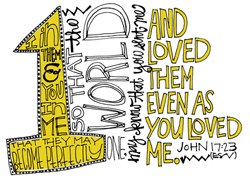 I in
THEM
&
YOU
in
ME
THAT THEY MAY
BECOME PERFECTLY
ONE.
SO THAT the
WORLD
may know that you sent me
AND
LOVED
THEM
EVEN AS
YOU LOVED
ME. JOHN 17:23
(ESV)